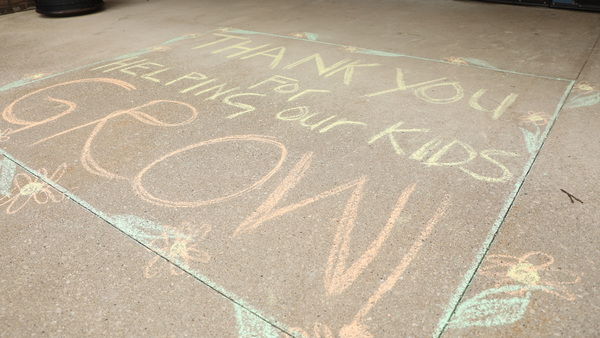 THANK YOU
FOR
HELPING OUr KIDS
GROW!